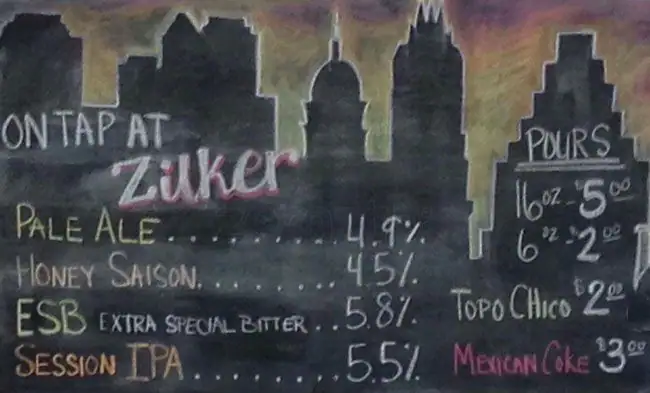 ON TAP AT
Zilker
PALE ALE.........4.9%
HONEY SAISON........4.5%
ESB EXTRA SPECIAL BITTER..5.8%
SESSION IPA........5.5%
POURS
16oz-$5.00
6oz-$2.00
TOPO CHICO $2.00
MEXICAN COKE $3.00